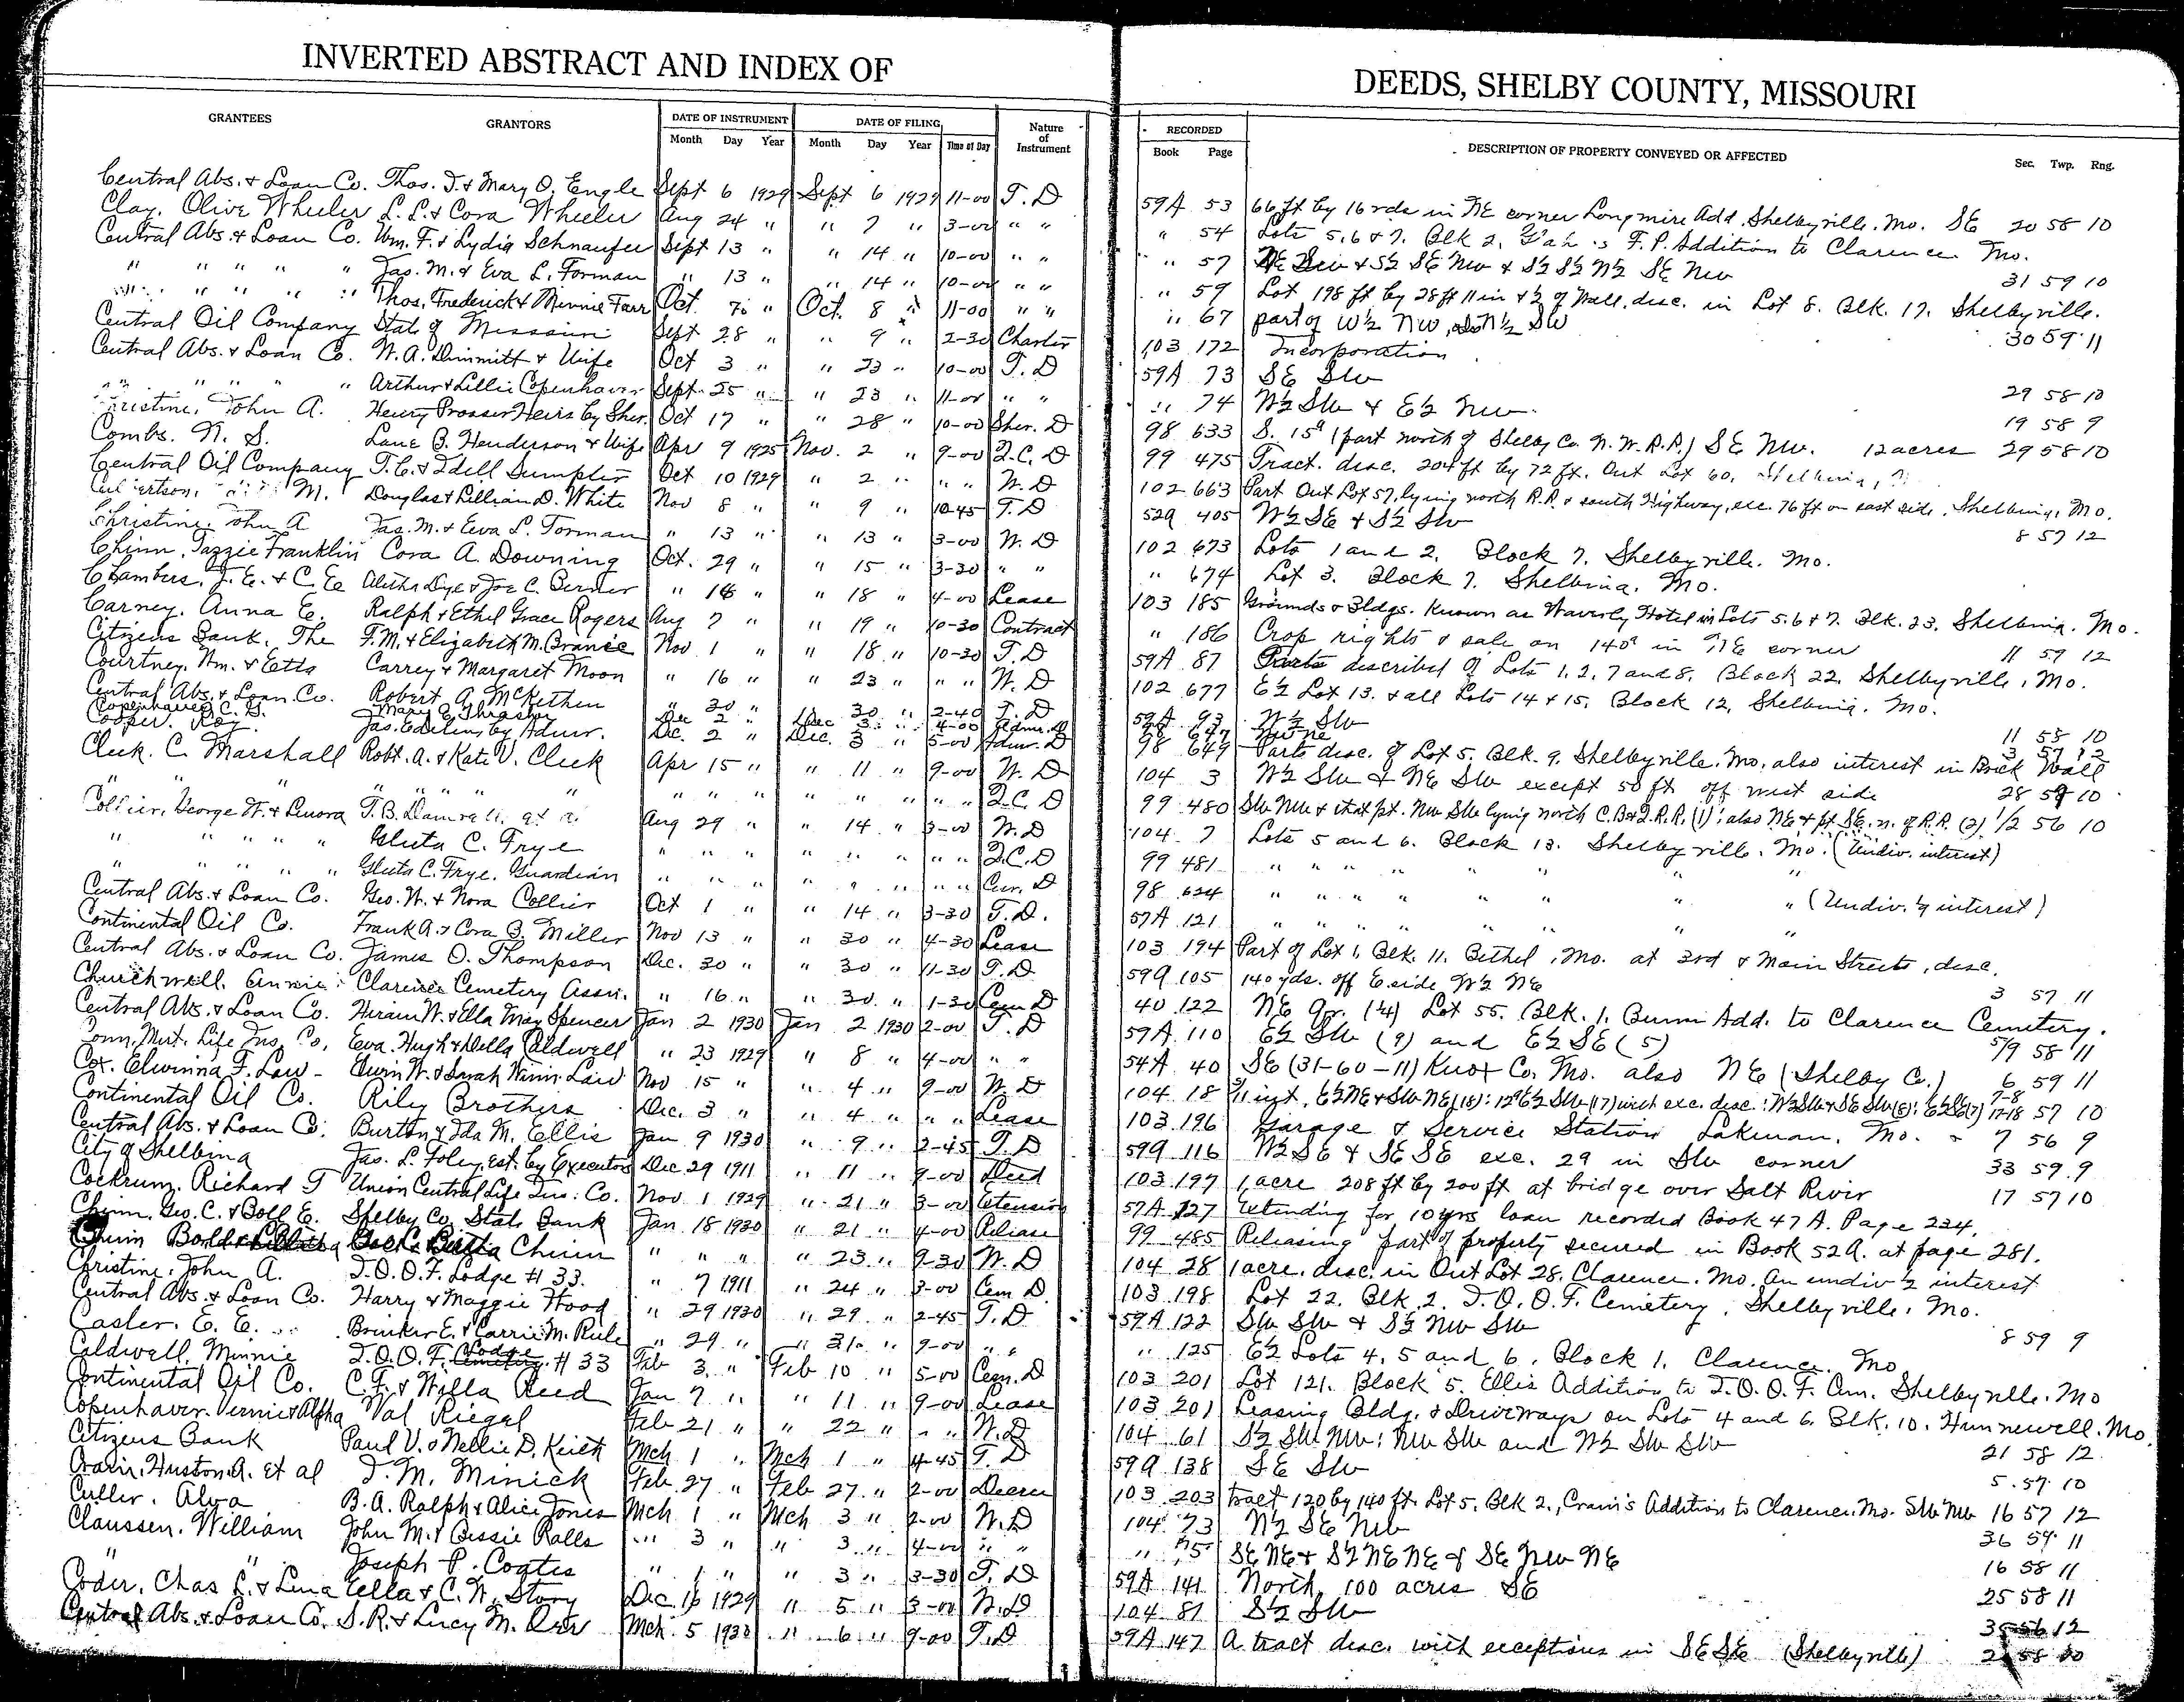 INVERTED ABSTRACT AND INDEX OF DEEDS, SHELBY COUNTY, MISSOURI
GRANTEES GRANTORS DATE OF INSTRUMENT DATE OF FILING Nature of Instrument RECORDED DESCRIPTION OF PROPERTY CONVEYED OR AFFECTED Sec. Twp. Rng.
Month Day Year Month Day Year Time of Day Book Page
Central Abs. & Loan Co. Thos. J. & Mary O. Engle Sept 6 1929 Sept 6 1929 11-00 T. D 59A 53 66 ft by 16 rds in NE corner Longmire Add. Shelbyville. Mo. SE 20 58 10
Clay, Olive Wheeler L. L. & Cora Wheeler Aug 24 " " 7 " 3-00 " " " 54 Lots 5, 6 & 7. Blk 2, F. P. Addition to Clarence Mo.
Central Abs. & Loan Co. Wm. F. & Lydia Schnaufer Sept 13 " " 14 " 10-00 " " " 57 & S½ SE NW & S½ S½ N½ SE NW 31 59 10
" " " " " Jas. M. & Eva L. Forman " 13 " " 14 " 10-00 " " " 59 Lot 198 ft by 28 ft 11 in & ½ of Wall, desc. in Lot 8. Blk. 17. Shelbyville.
" " " " " Thos. Frederick & Minnie Farr Oct. 7 " Oct. 8 " 11-00 " " " 67 part of W½ NW, also N½ SW 30 59 11
Central Oil Company State of Missouri Sept 28 " " 9 " 2-30 Charter 103 172 Incorporation
Central Abs. & Loan Co. W. A. Dimmitt & Wife Oct 3 " " 23 " 10-00 T. D 59A 73 SE SW 29 58 10
" " " " Arthur & Lillie Copenhaver Sept 25 " " 23 " 11-00 " " " 74 W½ SW & E½ NW. 19 58 9
Christine, John A. Henry Prosser Heirs by Sher. Oct 17 " " 28 " 10-00 Sher. D 98 633 S. 15a (part north of Shelby Co. N. W. R.R.) SE NW. 12 acres 29 58 10
Combs. N. S. Lane B. Henderson & Wife Apr 9 1925 Nov. 2 " 9-00 Q.C. D 99 475 Tract. desc. 204 ft by 72 ft. Out Lot 60,
Central Oil Company T. C. & Idell Dumpler Oct 10 1929 " 2 " " " W. D 102 663 Part Out Lot 57, lying north R.R. & south Highway, exc. 76 ft on east side. Shelbina, Mo.
M. Douglas & Lillian D. White Nov 8 " " 9 " 10-45 T. D 52a 405 W½ SE & S½ SW 8 57 12
Christine, John A Jas. M. & Eva L. Forman " 13 " " 13 " 3-00 W. D 102 673 Lots 1 and 2. Block 7. Shelbyville. Mo.
Chinn, Tazzie Franklin Cora A. Downing Oct. 29 " " 15 " 3-30 " " " 674 Lot 3. Block 7. Shelbina. Mo.
Chambers, J. E. & C. E. Dye & Joe C. " 18 " " 18 " 4-00 Lease 103 185 Grounds & Bldgs. known as Waverly Hotel in Lots 5. 6 & 7. Blk. 23. Shelbina. Mo.
Carney. Anna E. Ralph & Ethel Grace Rogers Aug 7 " " 19 " 10-30 Contract " 186 Crop rights & sale on 140a in NE corner 11 59 12
Citizens Bank, The F. M. & Elizabeth M. Nov. 1 " " 18 " 10-30 T. D 59A 87 Parts described of Lots 1, 2, 7 and 8, Block 22, Shelbyville, Mo.
Courtney, Wm. & Etta Carrey & Margaret Moon " 16 " " 23 " " " W. D 102 677 E½ Lot 13. & all Lots 14 & 15. Block 12, Shelbina. Mo.
Central Abs. & Loan Co. Robert A. McKethen " 30 " " 30 " 2-40 T. D 59A 93 W½ SW 11 58 10
Copenhaver, C. G. Mary E. Thrasher Dec 2 " Dec 3 " 4-00 Admr. D 98 647 NW NE 3 57 12
Cooper. Roy. Jas. Edelin by Admr. Dec. 2 " Dec. 3 " 5-00 Admr. D 98 649 Parts desc. of Lot 5. Blk. 9. Shelbyville. Mo, also interest in Brick Wall
Cleek. C. Marshall Robt. A. & Kate V. Cleek Apr 15 " " 11 " 9-00 W. D 104 3 W½ SW & NE SW except 50 ft off west side 28 59 10
" " " " " " " " " " " " " Q.C. D 99 480 SW NW & that pt. NW SW lying north C. B & Q. R.R. (1); also NE & pt SE. n. of R.R. (2) 1/2 56 10
Collier, George W. & Lenora T. B. Aug 29 " " 14 " 3-00 W. D 104 7 Lots 5 and 6. Block 13. Shelbyville. Mo. (Undiv. interest)
" " " " Gluta C. Frye " " " " " " " " Q.C. D 99 481 " " " " " " "
" " " " Gluta C. Frye. Guardian " " " " " " " " Cur. D 98 624 " " " " " " " (Undiv. 1/9 interest)
Central Abs. & Loan Co. Geo. W. & Nora Collier Oct 1 " " 14 " 3-30 T. D. 57A 121 " " " " " " "
Continental Oil Co. Frank A. & Cora B. Miller Nov 13 " " 30 " 4-30 Lease 103 194 Part of Lot 1, Blk. 11. Bethel, Mo. at 3rd & Main Streets, desc.
Central Abs. & Loan Co. James O. Thompson Dec. 30 " " 30 " 11-30 T. D 59a 105 140 yds. off E. side W½ NE 3 57 11
Churchwell, Annie Clarence Cemetery Assn. " 16 " " 30 " 1-30 Cem D 40 122 NE qr. (¼) Lot 55. Blk. 1. Bunn Add. to Clarence Cemetery.
Central Abs. & Loan Co. Hiram W. & Ella May Spencer Jan 2 1930 Jan 2 1930 2-00 T. D 59A 110 E½ SW (9) and E½ SE (5) 5/9 58 11
Conn. Mut. Life Ins. Co, Eva. Hugh & Della Caldwell " 23 1929 " 8 " 4-00 " " 54A 40 SE (31-60-11) Knox Co. Mo. also NE (Shelby Co.) 6 59 11
Cox. Elwinna F. Law Edwin W. & Sarah Winn Law Nov 15 " " 4 " 9-00 W. D 104 18 int. E½ NE & SW NE (18): 12a E½ SW (17) with exc. desc.: W½ SW & SE SW (8): 7-8 17-18 57 10
Continental Oil Co. Riley Brothers Dec. 3 " " 4 " " " Lease 103 196 Garage & Service Station Lakenan, Mo. 7 56 9
Central Abs. & Loan Co. Burton & Ida M. Ellis Jan 9 1930 " 9 " 2-45 T. D 59a 116 W½ SE & SE SE exc. 2a in SW corner 33 59 9
City of Shelbina Jas. L. Foley, Est. by Executors Dec 29 1911 " 11 " 9-00 Deed 103 197 1 acre 208 ft by 200 ft at bridge over Salt River 17 57 10
Cockrum, Richard T Union Central Life Ins. Co. Nov 1 1929 " 21 " 3-00 Extension 57A 127 Extending for 10 yrs loan recorded Book 47 A. Page 234.
Chinn, Geo. C. & Boll E. Shelby Co. State Bank Jan. 18 1930 " 21 " 4-00 Release 99 485 Releasing part of property secured in Book 52a. at page 281.
Chinn Chinn " " " " 23 " 9-30 W. D 104 28 1 acre. desc. in Out Lot 28. Clarence. Mo. an undiv ½ interest
Christine, John A. I. O. O. F. Lodge # 33. " 7 1911 " 24 " 3-00 Cem D 103 198 Lot 22. Blk. 2. I. O. O. F. Cemetery, Shelbyville, Mo.
Central Abs. & Loan Co. Harry & Maggie Hood " 29 1930 " 29 " 2-45 T. D 59A 122 SW SW & S½ NW SW 8 59 9
Casler. E. E. Brinker E. & Carrie M. Rule " 29 " " 31 " 9-00 " " " 125 E½ Lots 4, 5 and 6. Block 1. Clarence. Mo
Caldwell, Minnie I. O. O. F. Lodge # 33 Feb 3 " Feb 10 " 5-00 Cem. D 103 201 Lot 121. Block 5. Ellis Addition to I. O. O. F. Cem. Shelbyville. Mo
Continental Oil Co. C. F. & Willa Reed Jan 7 " " 11 " 9-00 Lease 103 201 Leasing Bldg. & Driveways on Lots 4 and 6. Blk. 10. Hunnewell. Mo.
Copenhaver. Vernie & Alpha Val Riegel Feb 21 " " 22 " " " W. D 104 61 S½ SW NW: NW SW and W½ SW SW 21 58 12
Citizens Bank Paul V. & Nellie D. Keith Mch 1 " Mch 1 " 4-45 T. D 59a 138 SE SW 5 57 10
Crain, Huston A. et al I. M. Minick Feb 27 " Feb 27 " 2-00 Decree 103 203 tract 120 by 140 ft. Lot 5. Blk 2., Crain's Addition to Clarence. Mo. SW NW 16 57 12
Culler, Alva B. A. Ralph & Alice Jones Mch 1 " Mch 3 " 2-00 W. D 104 73 W½ SE NW 36 59 11
Claussen, William John M. & Bessie Ralls " 3 " " 3 " 4-00 " " " 75 SE NE & S½ NE NE & SE NW NE 16 58 11
" " Joseph P. Coates " 1 " " 3 " 3-30 T. D 59A 141 North 100 acres SE 25 58 11
Coder, Chas L. & Lena Ella & C. N. Story Dec 16 1929 " 5 " 3-00 W. D 104 81 S½ SW 35 56 12
Central Abs. & Loan Co. S. R. & Lucy M. Orr Mch. 5 1930 " 6 " 9-00 T. D 59A 147 A tract desc. with exceptions in SE SE (Shelbyville) 58